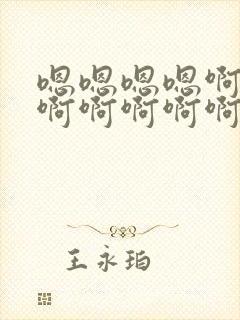 嗯嗯嗯嗯啊
啊啊啊啊啊
王永珀